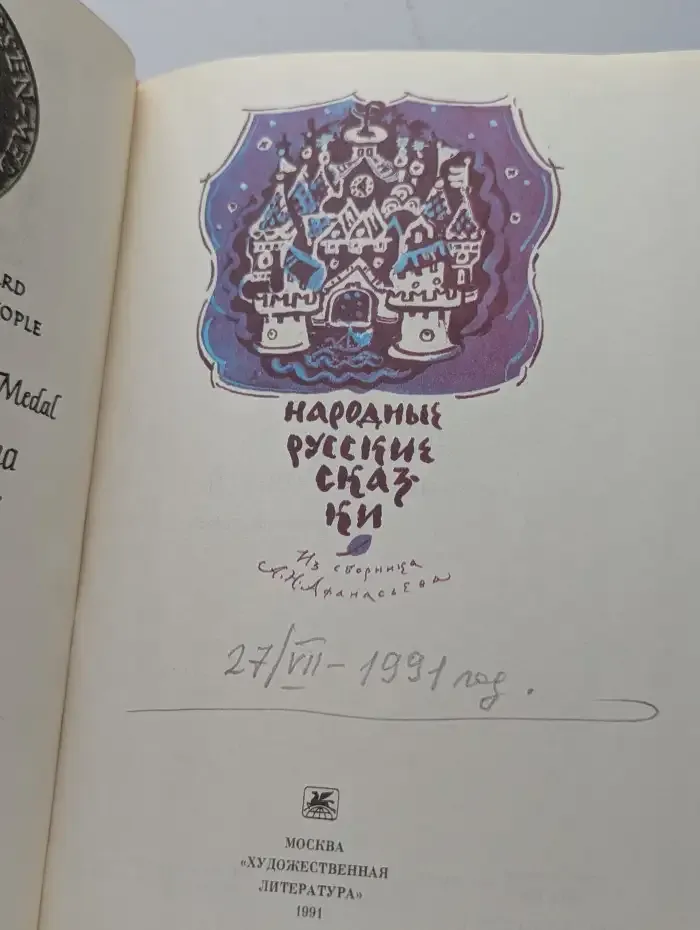 SEN MED
RD
OPLE
Medal
НАРОДНЫЕ
РУССКИЕ
СКАЗ-
КИ
Из сборника
А.Н.Афанасьева
27/VII – 1991 год.
МОСКВА
«ХУДОЖЕСТВЕННАЯ
ЛИТЕРАТУРА»
1991